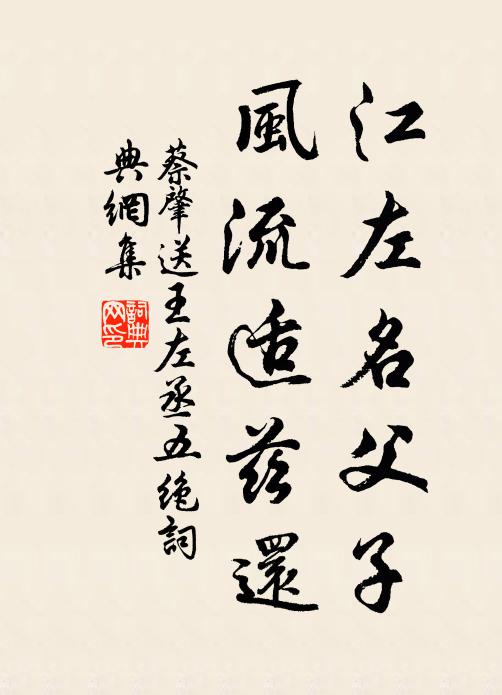 江左名父子
風流适茲還
蔡肇送王左丞五絶詞
典網集
詞典網印